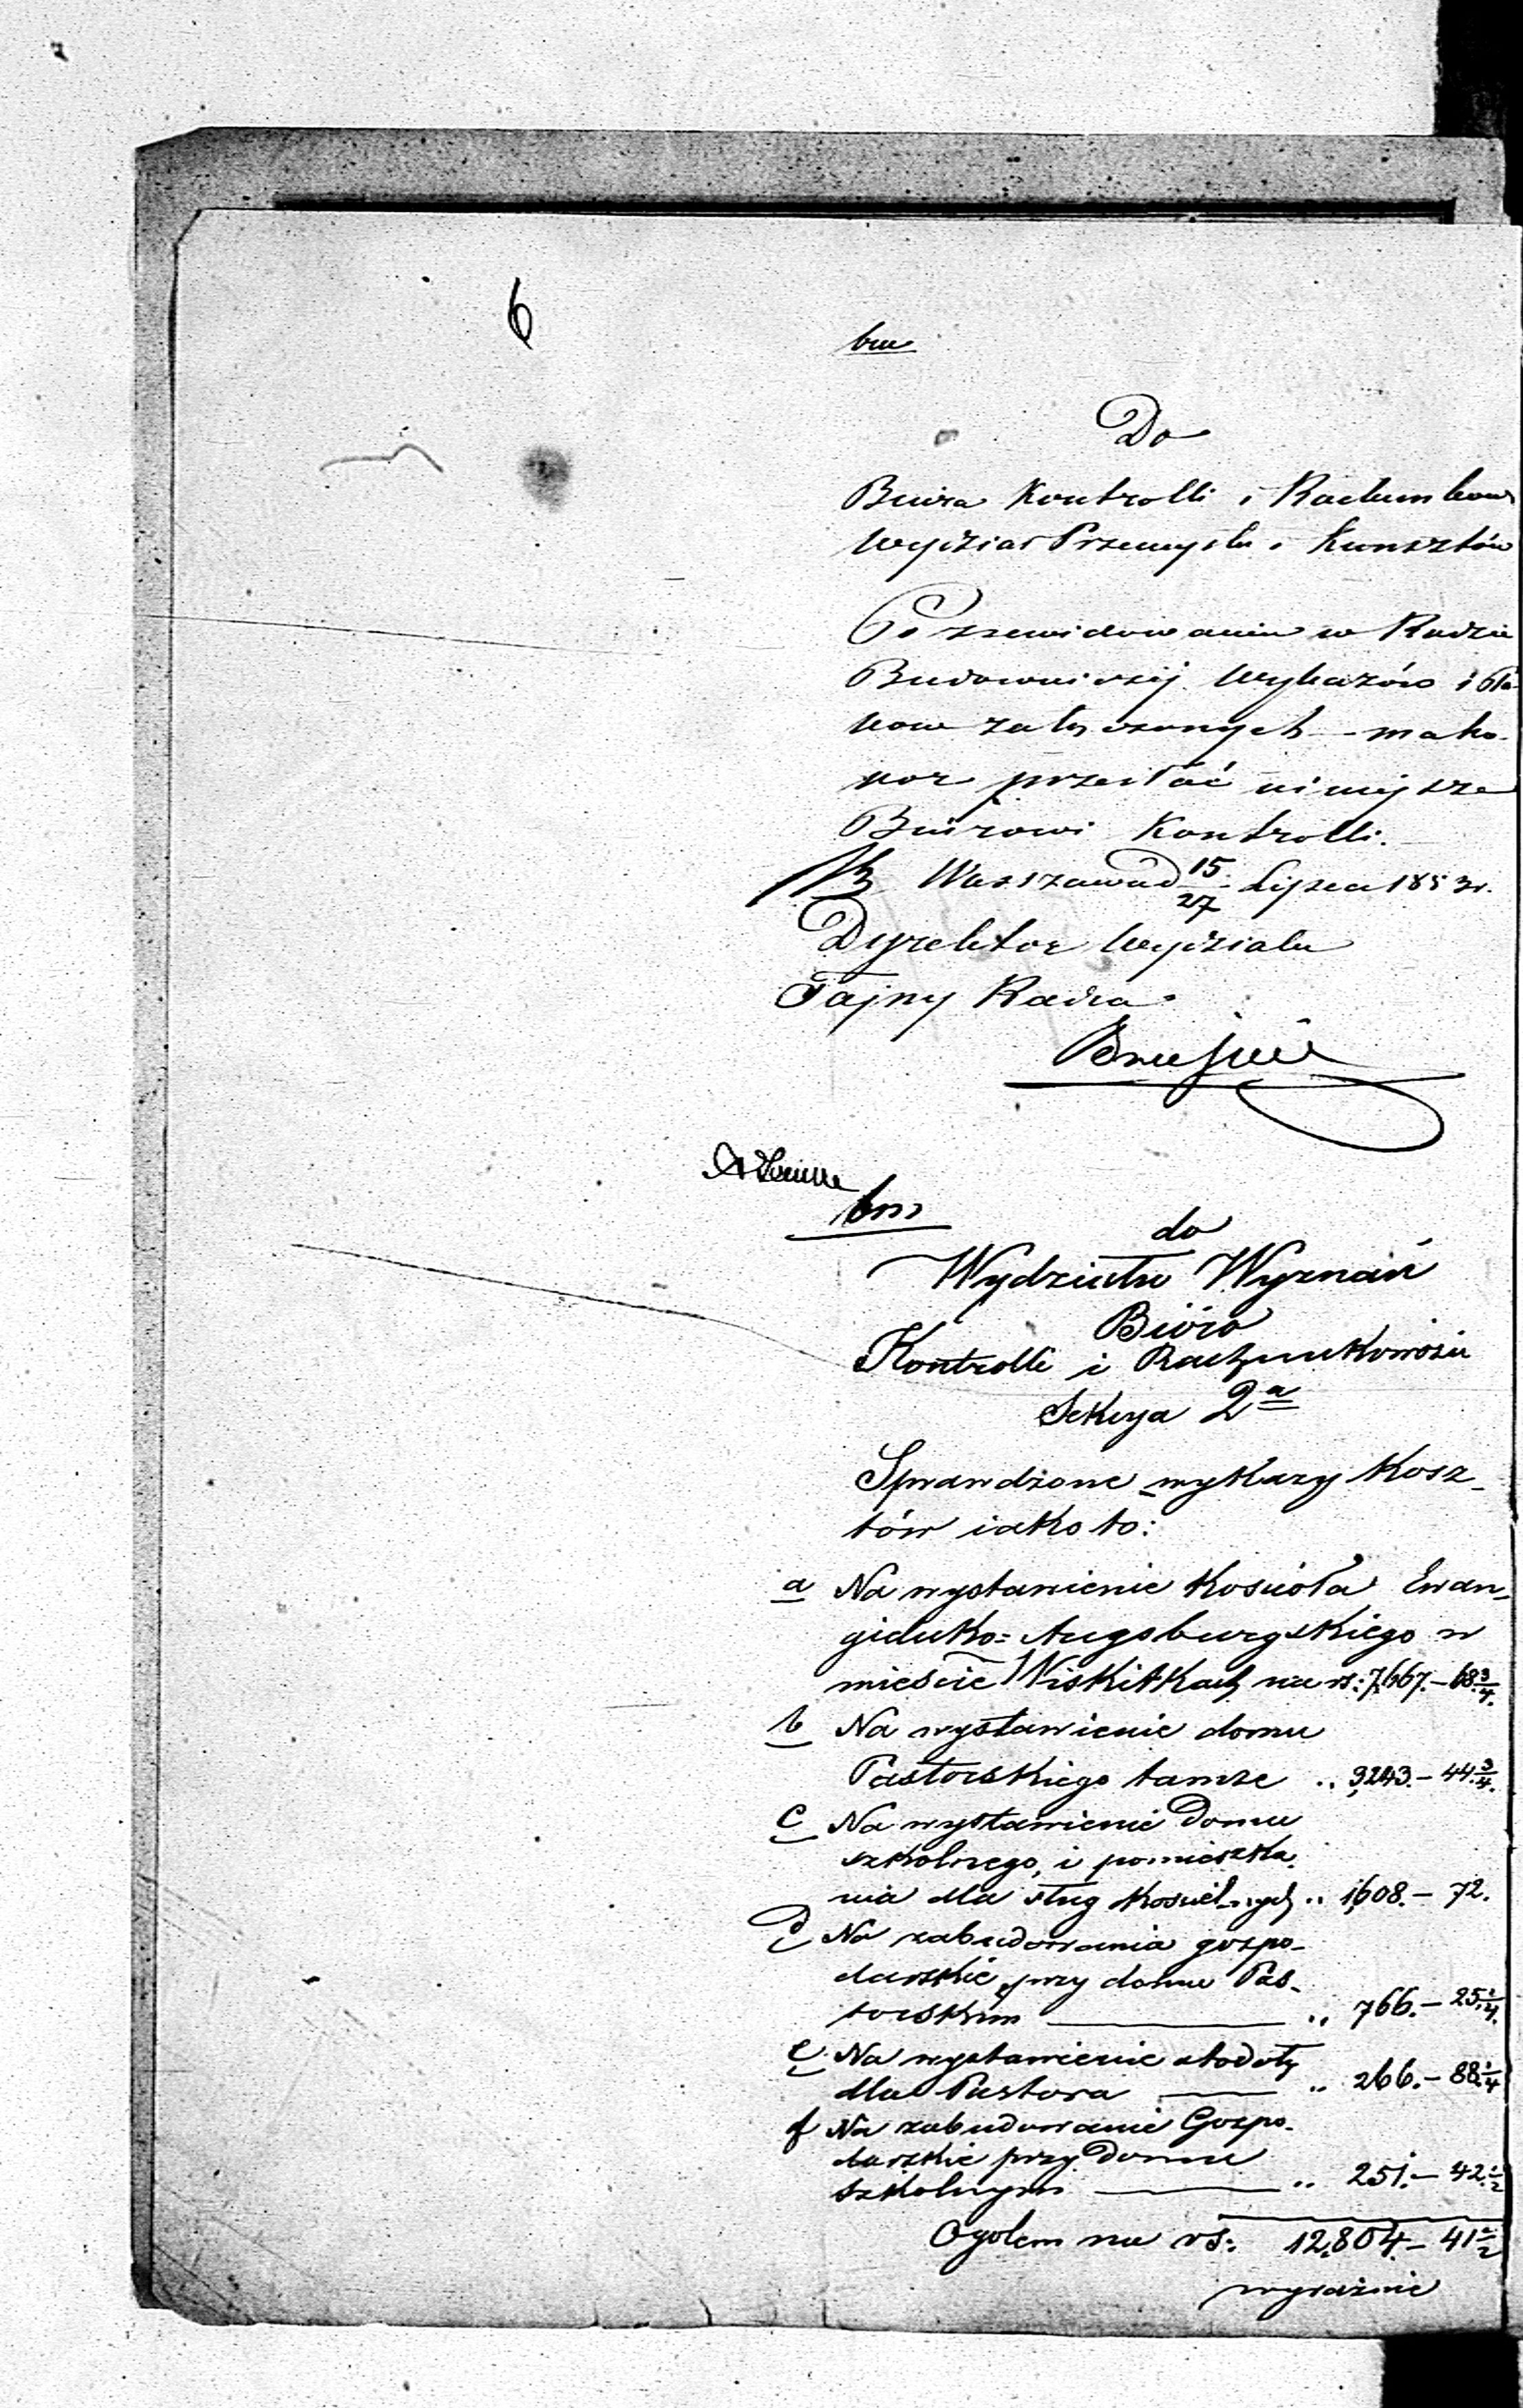 6
bm
Do
Biura Kontrolli i Rachunkow
Wydział Przemysłu i Kunsztów
Po zrewidowaniu w Radzie
Budowniczej Wykazów i Pla-
now załączonych – ma ho-
nor przesłać niniejsze
Biurowi Kontrolli.
Warszawa d 15/27 Lipca 1853 r.
Dyrektor Wydziału
Tajny Radca
bm
do
Wydziału Wyznań
Bióro
Kontrolli i Rachunkowości
Sekcya 2a
Sprawdzone wykazy kosz-
tów iako to:
a Na wystawienie Kościoła Ewan-
gielicko=Augsburgskiego w
mieście Wiskitkach na rs: 7,667.–68 3/4.
b Na wystawienie domu
Pastorskiego tamże .. 3,243.–44 3/4.
c Na wystawienie Domu
szkolnego, i pomieszka-
nia dla sług kościelnych .. 1,608.– 72.
d Na zabudowania gospo-
darskie przy domu Pas-
torskim .. 766.– 25 1/4.
e Na wystawienie stodoły
dla Pastora .. 266.– 88 1/4
f Na zabudowanie Gospo-
darskie przy Domu
szkolnym .. 251.– 42 1/2
Ogołem na rs: 12,804.– 41 1/2
wyraźnie